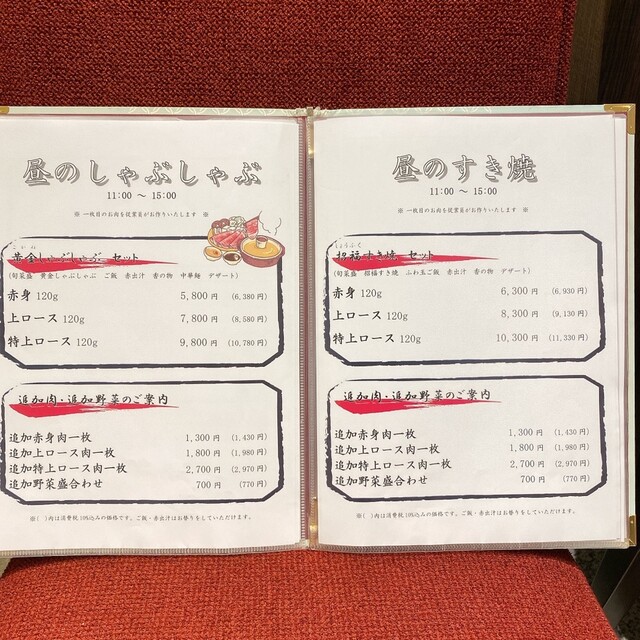 昼のしゃぶしゃぶ
11:00 〜 15:00
※ 一枚目のお肉を従業員がお作りいたします ※
こがね
黄金しゃぶしゃぶ セット
(旬菜盛 黄金しゃぶしゃぶ ご飯 赤出汁 香の物 中華麺 デザート)
赤身 120g 5,800 円 (6,380円)
上ロース 120g 7,800 円 (8,580円)
特上ロース 120g 9,800 円 (10,780円)
追加肉・追加野菜のご案内
追加赤身肉一枚 1,300 円 (1,430円)
追加上ロース肉一枚 1,800 円 (1,980円)
追加特上ロース肉一枚 2,700 円 (2,970円)
追加野菜盛合わせ 700 円 (770円)
※( )内は消費税10%込みの価格です。ご飯・赤出汁はお替りをしていただけます。
昼のすき焼
11:00 〜 15:00
※ 一枚目のお肉を従業員がお作りいたします ※
しょうふく
招福すき焼 セット
(旬菜盛 招福すき焼 ふわ玉ご飯 赤出汁 香の物 デザート)
赤身 120g 6,300 円 (6,930円)
上ロース 120g 8,300 円 (9,130円)
特上ロース 120g 10,300 円 (11,330円)
追加肉・追加野菜のご案内
追加赤身肉一枚 1,300 円 (1,430円)
追加上ロース肉一枚 1,800 円 (1,980円)
追加特上ロース肉一枚 2,700 円 (2,970円)
追加野菜盛合わせ 700 円 (770円)
※( )内は消費税10%込みの価格です。ご飯・赤出汁はお替りをしていただけます。